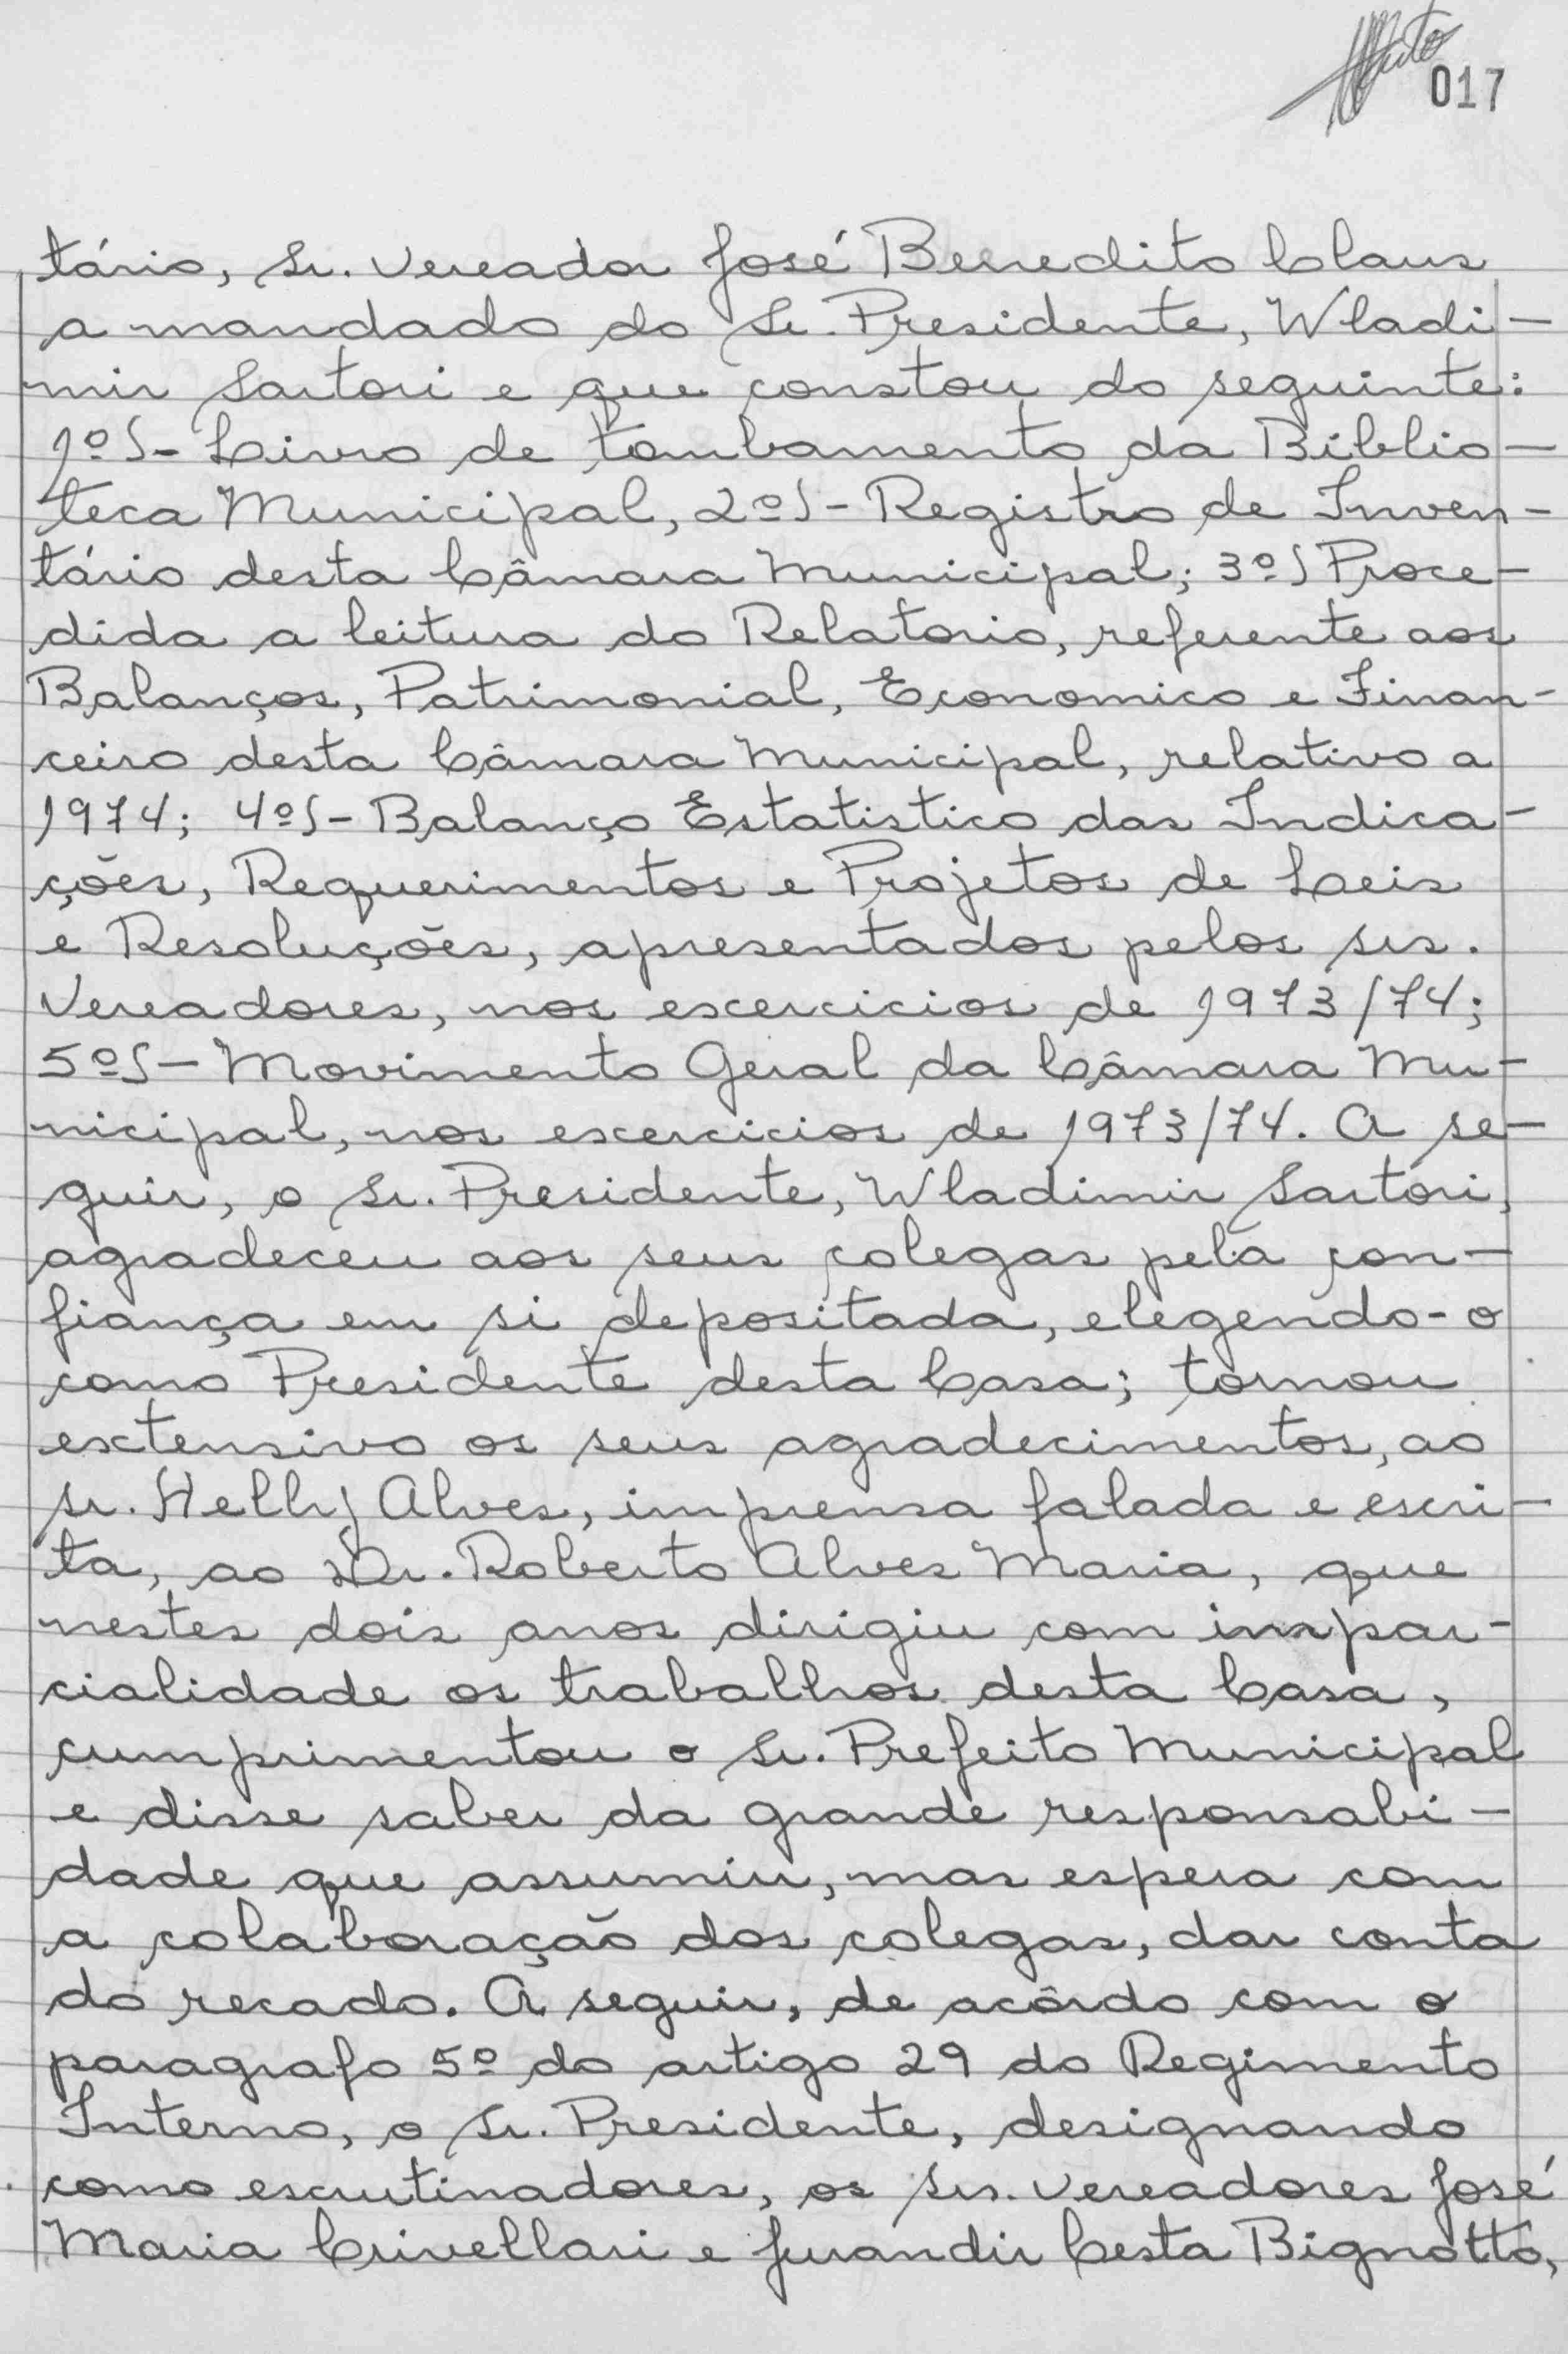 017
tário, Sr. Vereador José Benedito Claus
a mandado do Sr. Presidente, Wladi-
mir Sartori e que constou do seguinte:
1º)- Livro de tombamento da Biblio-
teca Municipal, 2º)- Registro de Inven-
tário desta Câmara Municipal; 3º) Proce-
dida a leitura do Relatorio, referente aos
Balanços, Patrimonial, Economico e Finan-
ceiro desta Câmara Municipal, relativo a
1974; 4º)- Balanço Estatistico das Indica-
ções, Requerimentos e Projetos de Leis
e Resoluções, apresentados pelos srs.
Vereadores, nos excercicios de 1973/74;
5º)- Movimento Geral da Câmara Mu-
nicipal, nos excercicios de 1973/74. A se-
guir, o Sr. Presidente, Wladimir Sartori,
agradeceu aos seus colegas pela con-
fiança em si depositada, elegendo-o
como Presidente desta Casa; tornou
extensivo os seus agradecimentos, ao
sr. Helly Alves, imprensa falada e escri-
ta, ao Dr. Roberto Alves Maria, que
nestes dois anos dirigiu com impar-
cialidade os trabalhos desta Casa,
cumprimentou o Sr. Prefeito Municipal
e disse saber da grande responsabi-
dade que assumiu, mas espera com
a colaboração dos colegas, dar conta
do recado. A seguir, de acôrdo com o
paragrafo 5º do artigo 29 do Regimento
Interno, o Sr. Presidente, designando
como escrutinadores, os srs. vereadores José
Maria Crivellari e Jurandir Cesta Bignotto,